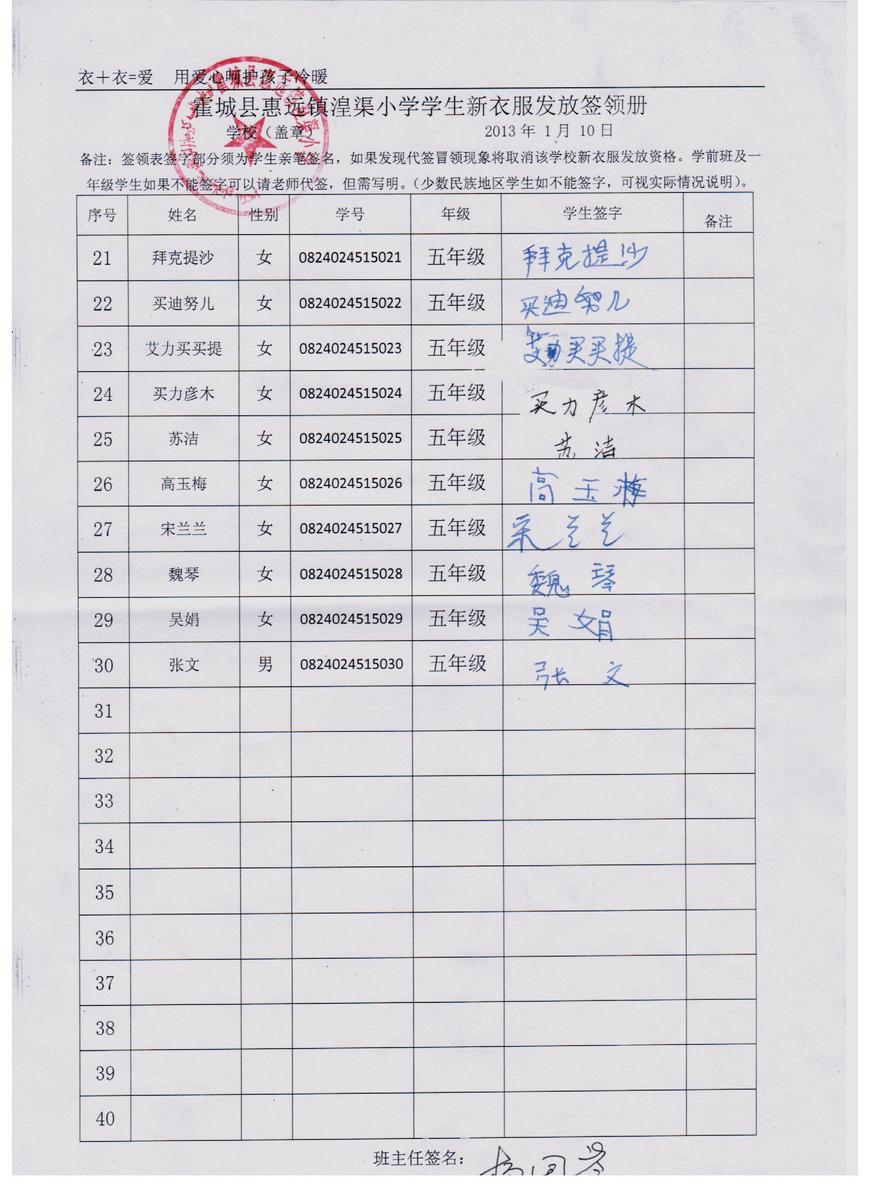 衣＋衣=爱 用爱心呵护孩子冷暖
霍城县惠远镇湟渠小学学生新衣服发放签领册
学校（盖章） 2013 年 1 月 10 日
备注：签领表签字部分须为学生亲笔签名，如果发现代签冒领现象将取消该学校新衣服发放资格。学前班及一
年级学生如果不能签字可以请老师代签，但需写明。（少数民族地区学生如不能签字，可视实际情况说明）。
序号 姓名 性别 学号 年级 学生签字 备注
21 拜克提沙 女 0824024515021 五年级 拜克提沙
22 买迪努儿 女 0824024515022 五年级 买迪努儿
23 艾力买买提 女 0824024515023 五年级 艾力买买提
24 买力彦木 女 0824024515024 五年级 买力彦木
25 苏洁 女 0824024515025 五年级 苏洁
26 高玉梅 女 0824024515026 五年级 高玉梅
27 宋兰兰 女 0824024515027 五年级 宋兰兰
28 魏琴 女 0824024515028 五年级 魏琴
29 吴娟 女 0824024515029 五年级 吴娟
30 张文 男 0824024515030 五年级 张文
31
32
33
34
35
36
37
38
39
40
班主任签名：